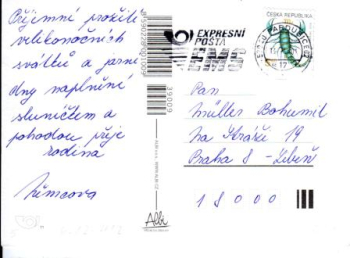 Příjemné prožití
velikonočních
svátků a jarní
dny naplněné
sluníčkem a
pohodou přeje
rodina
Němcova
39009
Albi
EXPRESNÍ
POŠTA
EMS
ČESKÁ REPUBLIKA
Pan
Müller Bohumil
Na Stráži 19
Praha 8 - Libeň
18000